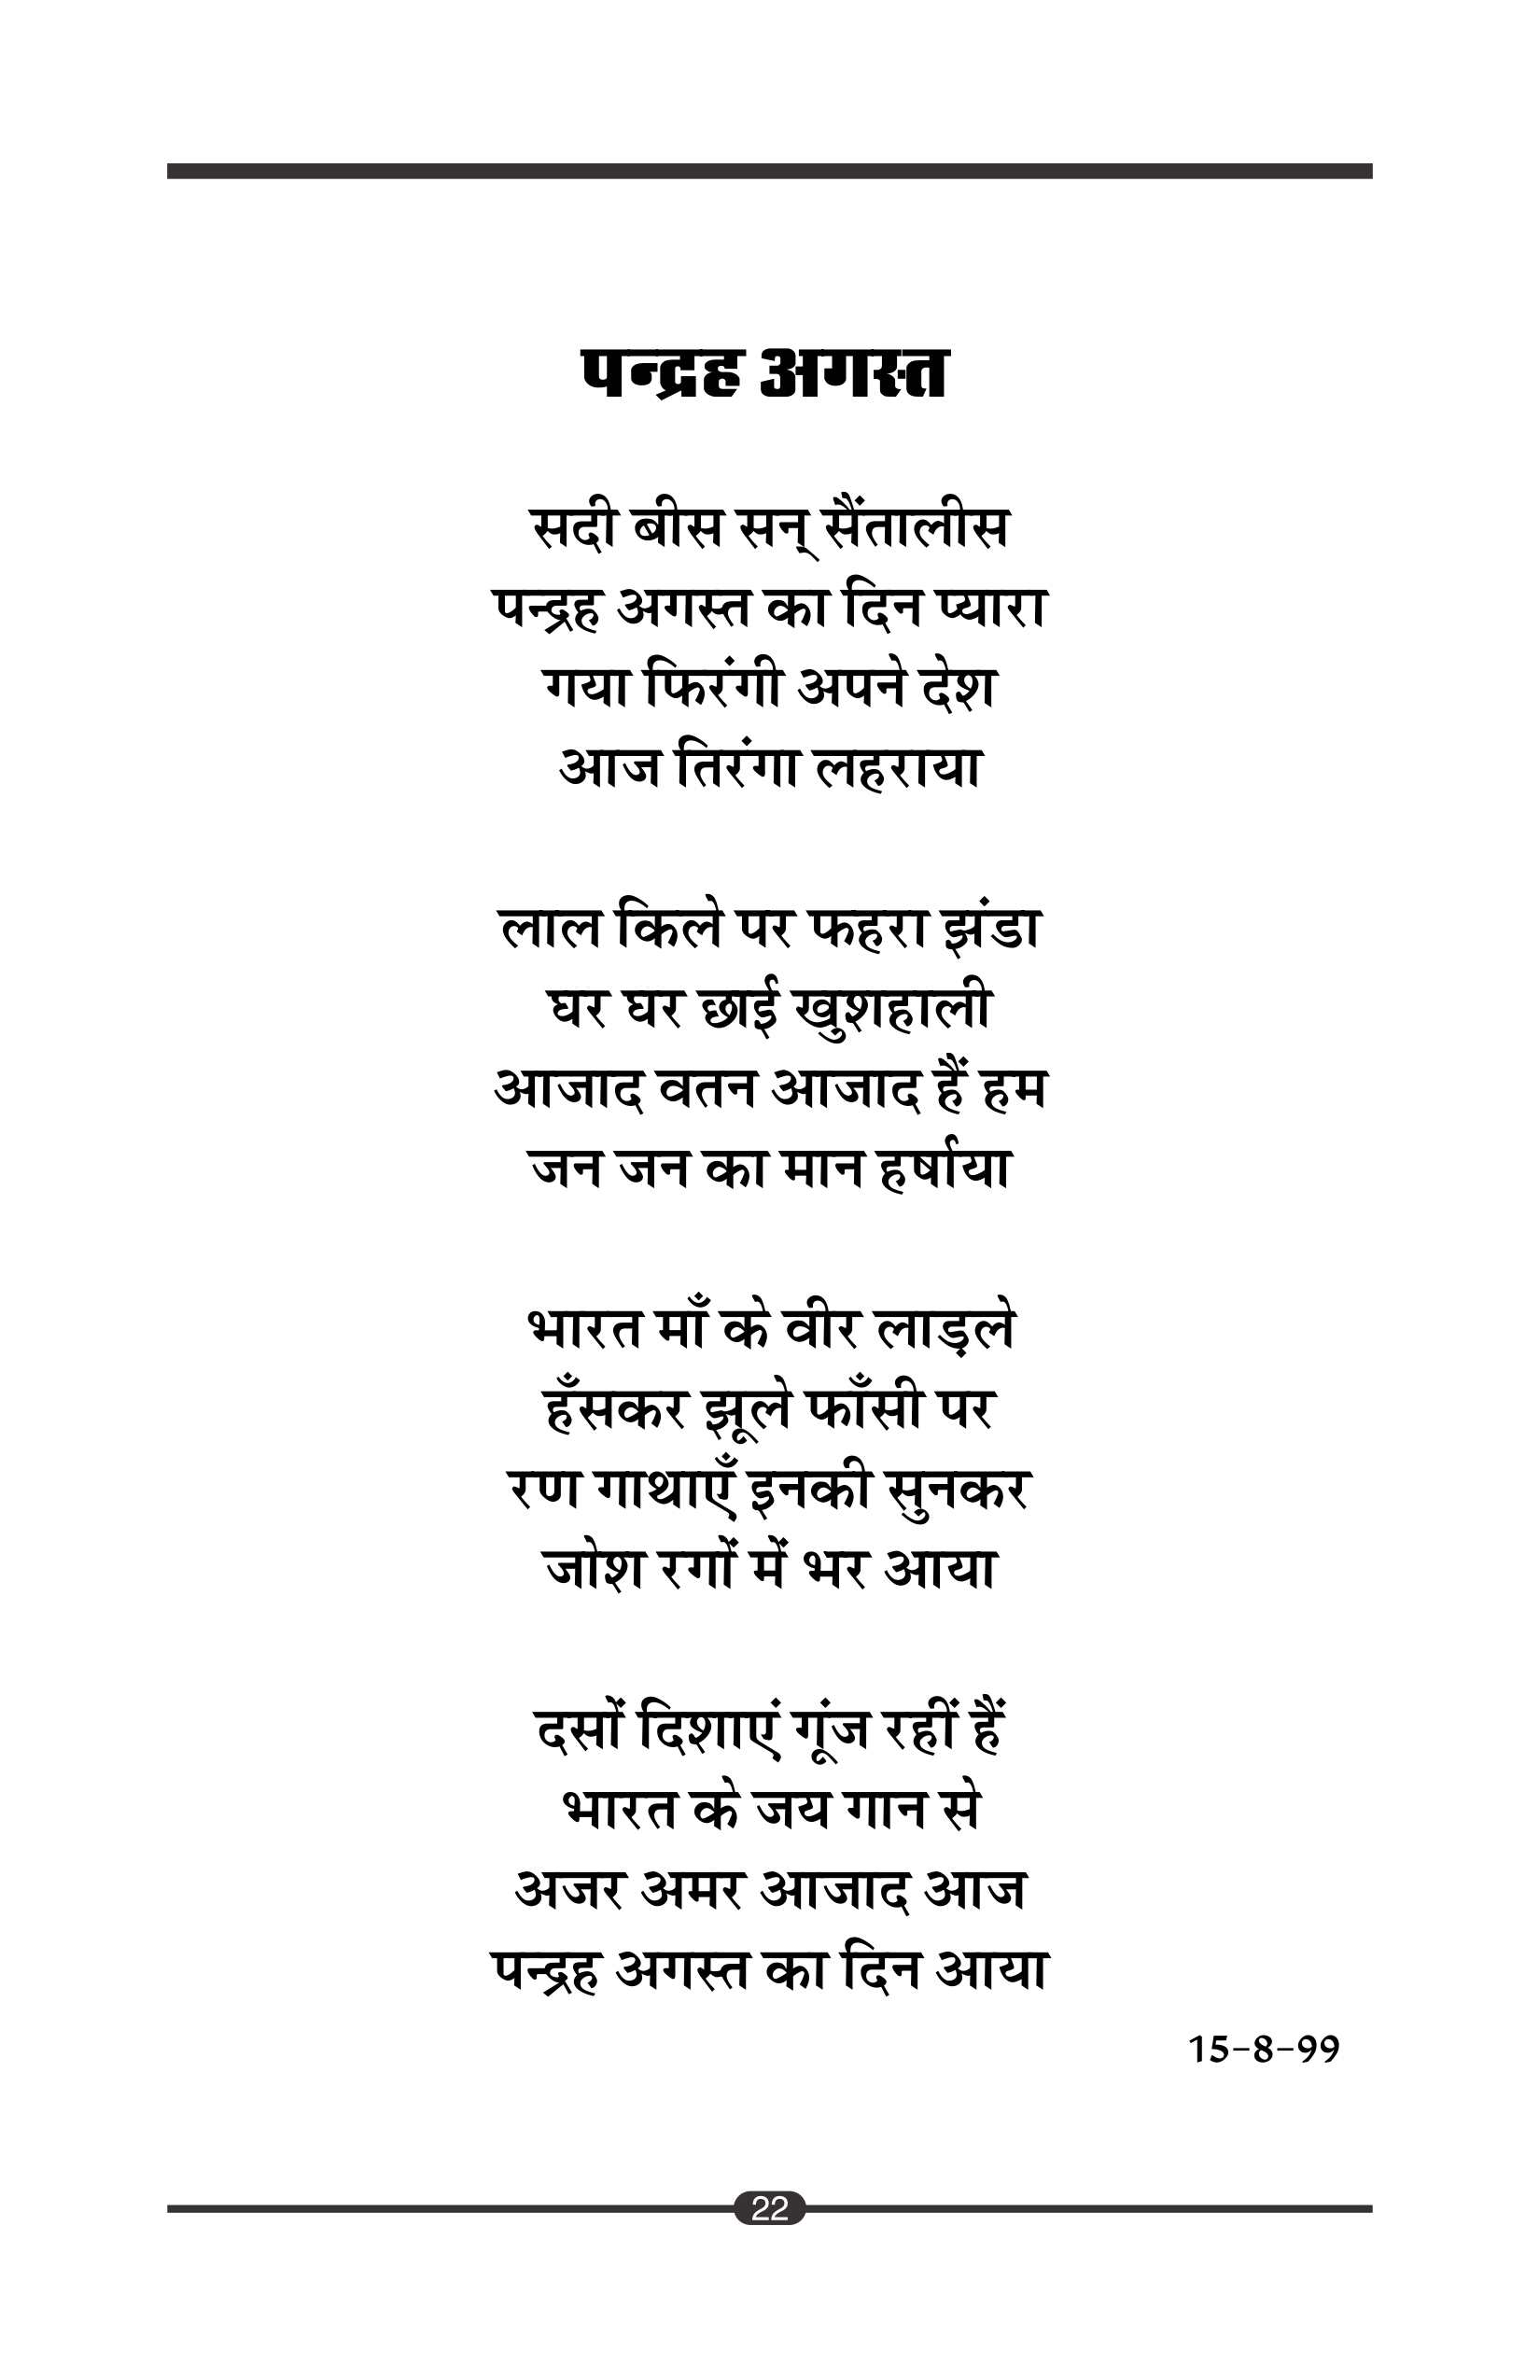 पन्द्रह अगस्त
सदी बीस सन् सैंतालीस
पन्द्रह अगस्त का दिन प्यारा
गया फिरंगी अपने देश
आज तिरंगा लहराया
लाल किले पर फहरा झंडा
घर घर छाई खुशहाली
आजाद वतन आजाद हैं हम
जन जन का मान हर्षाया
भारत माँ के वीर लाड़ले
हँसकर झूले फाँसी पर
रण गाथाएँ इनकी सुनकर
जोश रगों में भर आया
दसों दिशाएं गूंज रहीं हैं
भारत के जय गान से
अजर अमर आजाद आज
पन्द्रह अगस्त का दिन आया
15-8-99
22